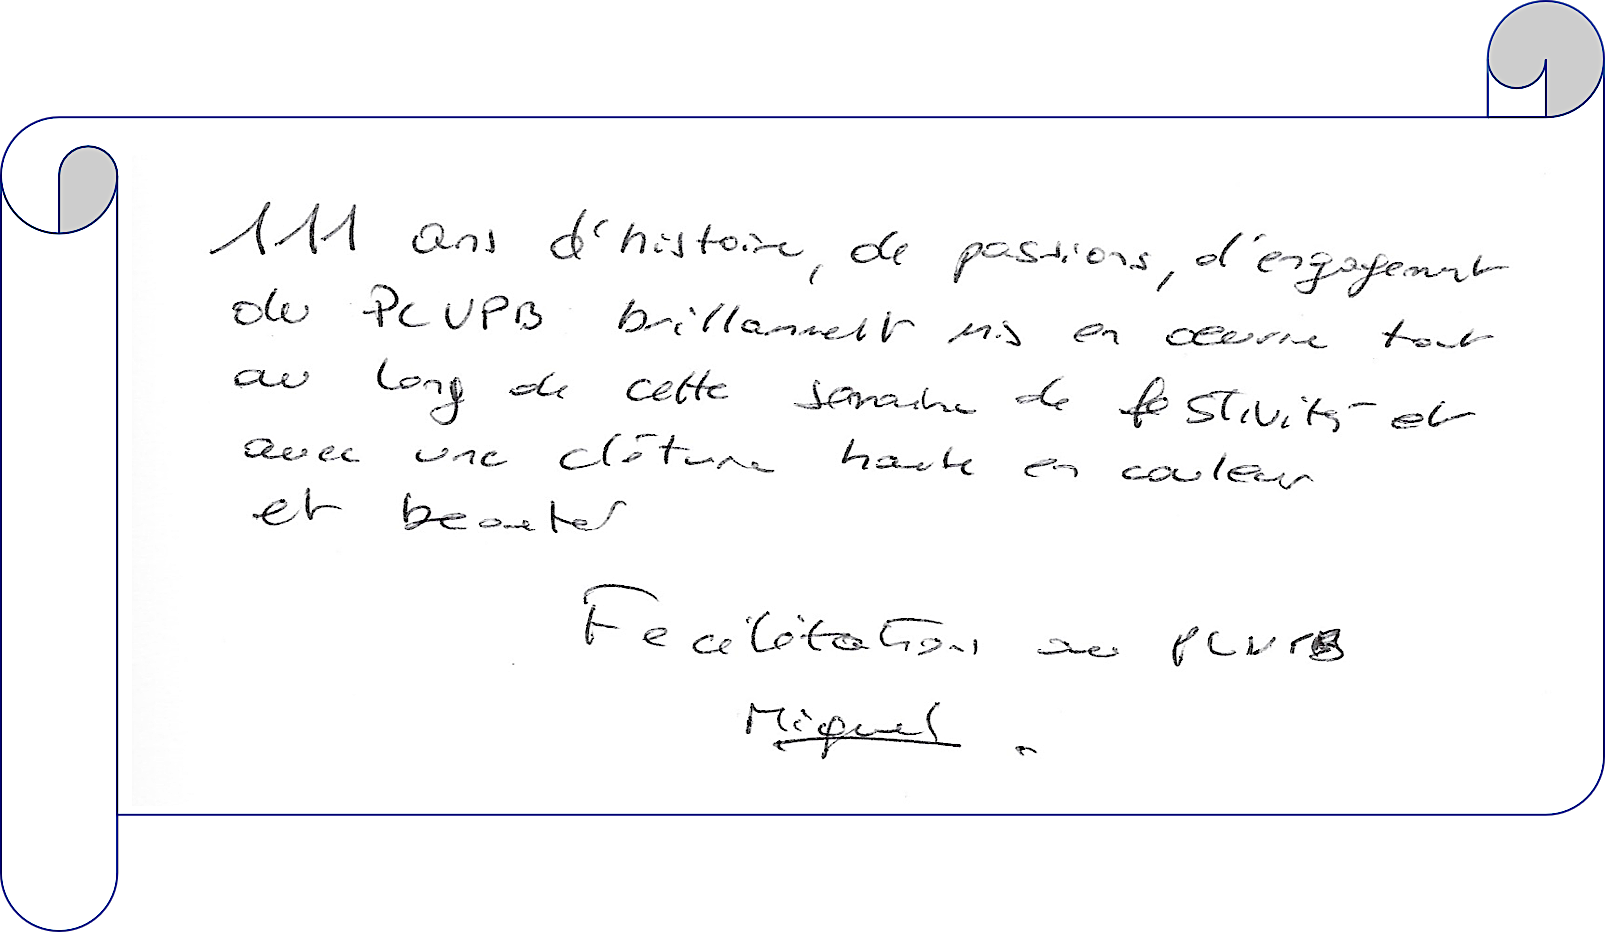 111 ans d'histoire, de passions, d'engagement
du PCUPB brillamment mis en œuvre tout
au long de cette semaine de festivités et
avec une clôture haute en couleur
et beautés
Fecilitation au PCUPB
Miguel